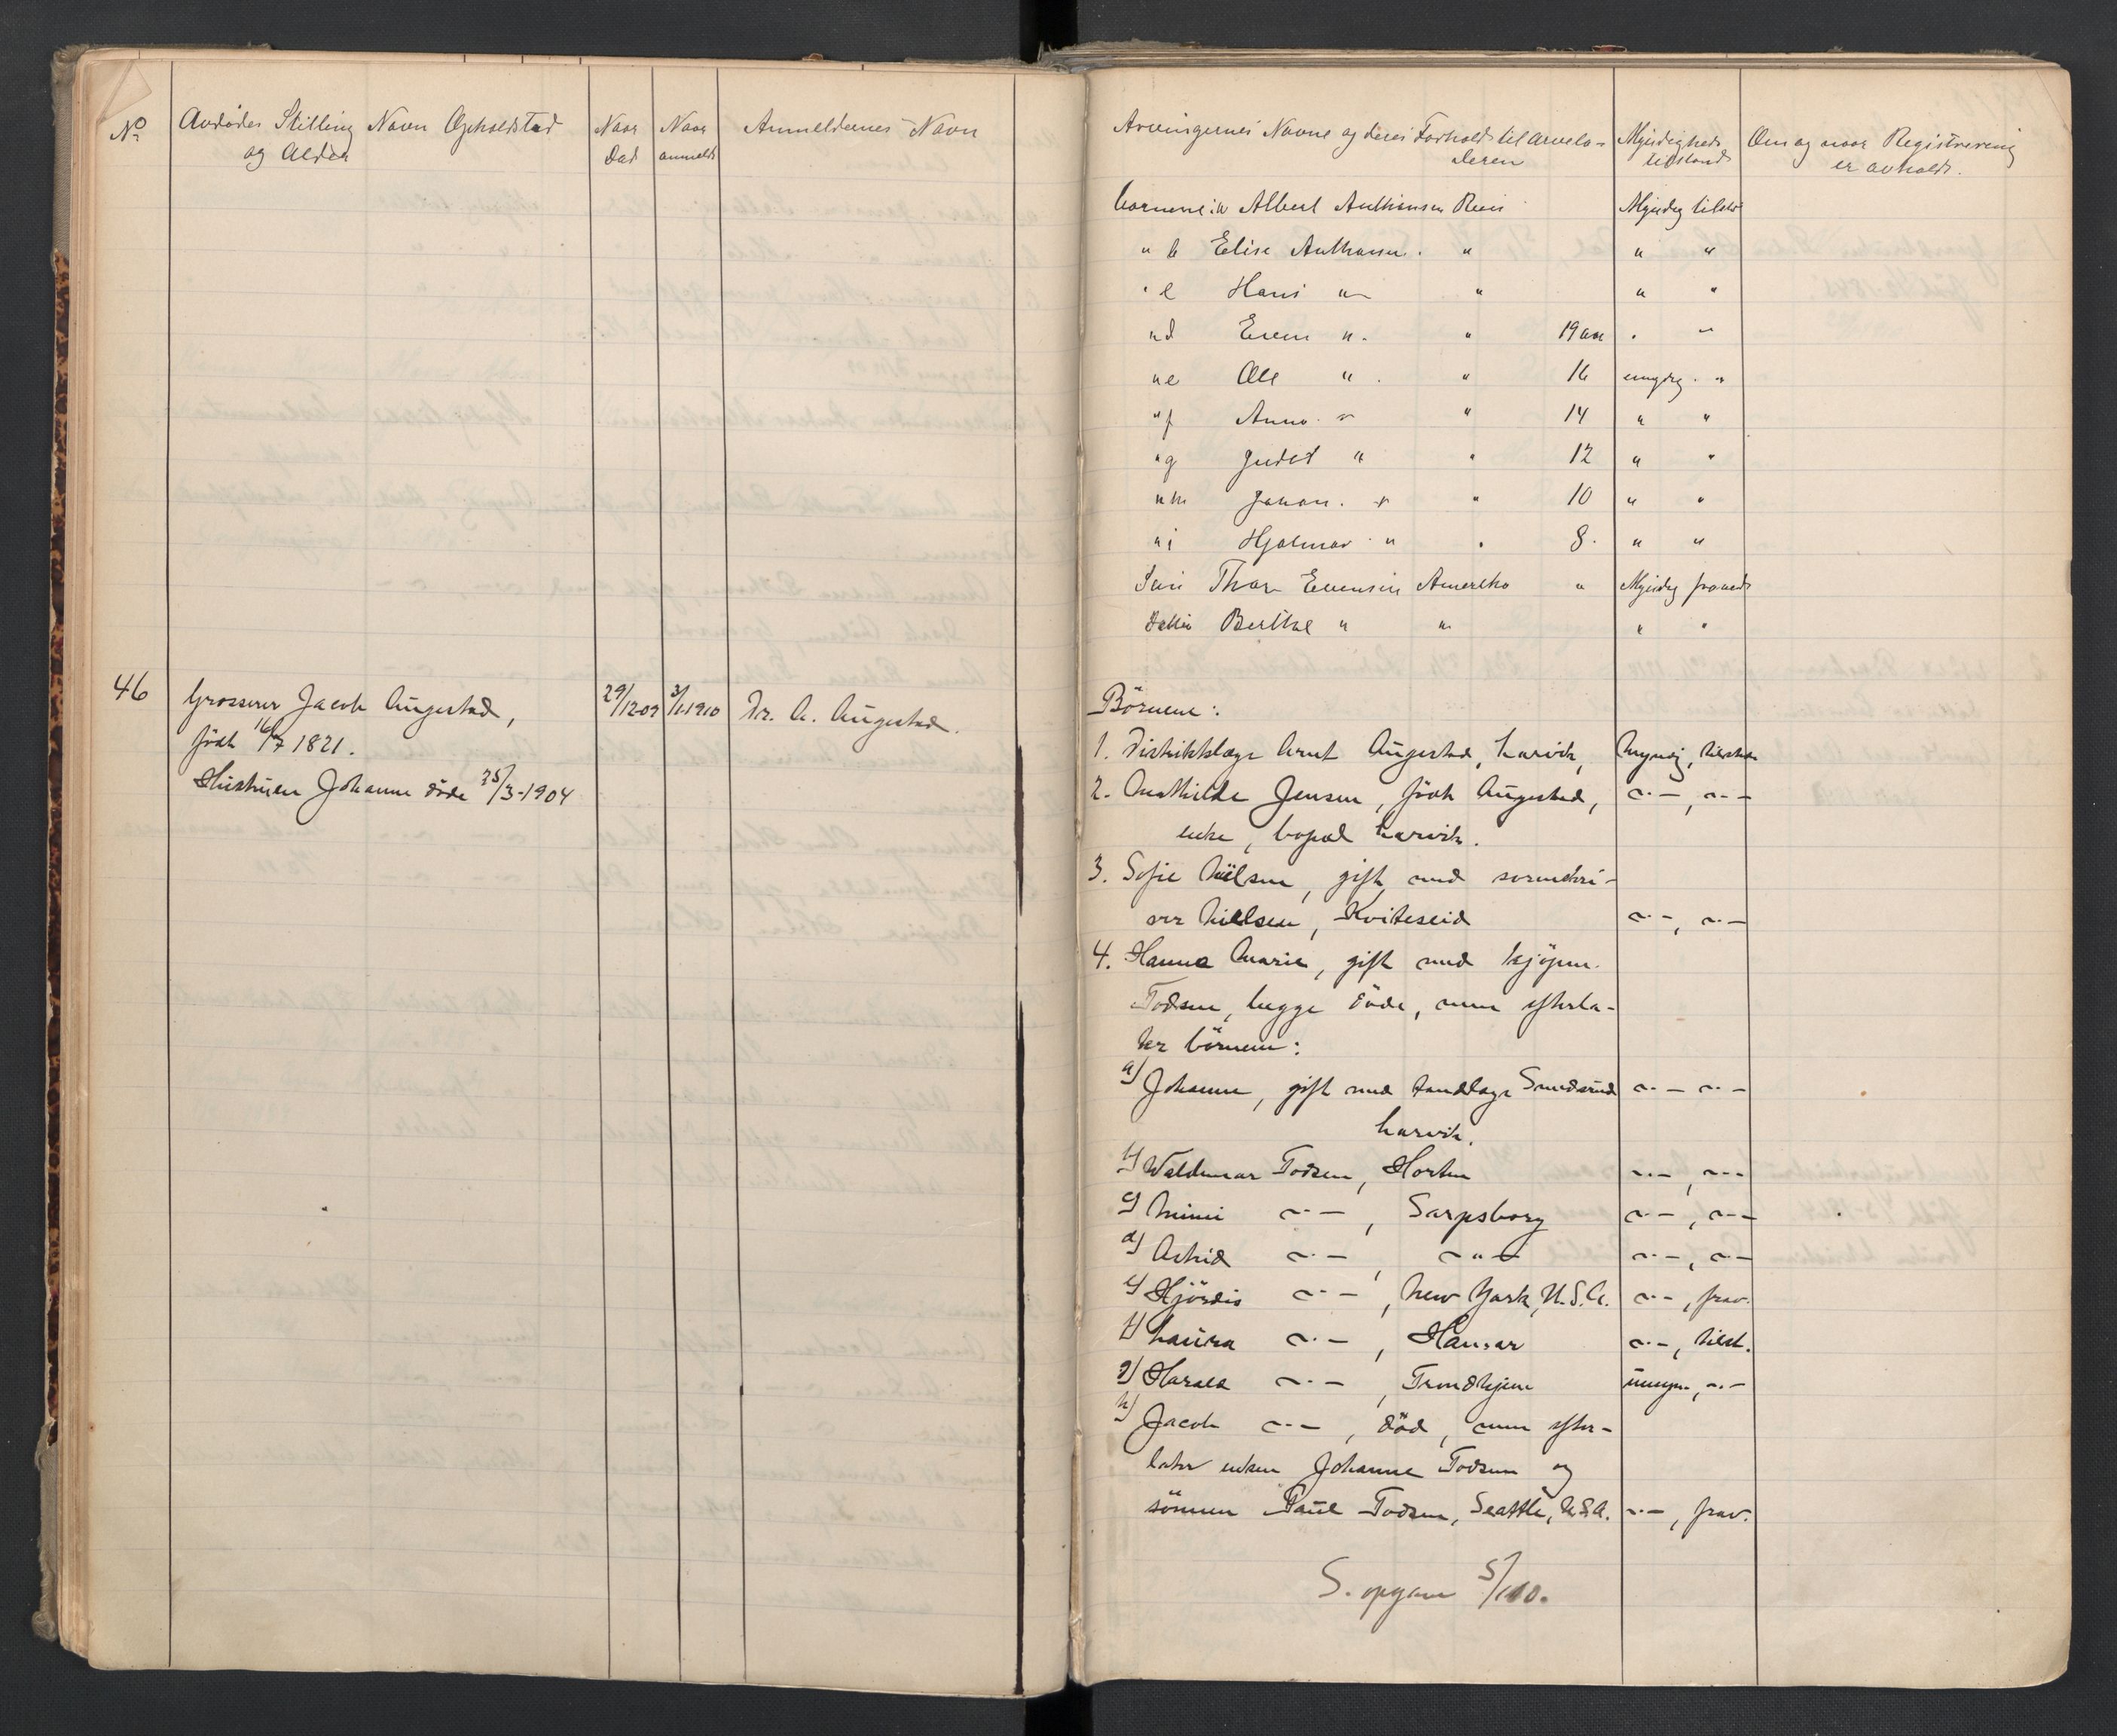 No Avdødes Stilling Navn Opholdsted og Alder Naar Død Naar anmeldt Anmeldernes Navn
Arvingernes Navne og deres Forhold til Arveladeren Myndigheds tilstand Om og naar Registrering er avholdt.
børnene: a Albert Anthonsen Myndig tilsted
" b Elise Anthonsen. " " "
" c Hans " " " "
" d Even " " 19 aar " "
" e Ole " " 16 umyndig "
" f Anna " " 14 " "
" g Judet " " 12 " "
" h Johan. " " 10 " "
" i Hjalmar " " 8. " "
Søn Thor Evensen Amerika " Myndig fraværd
Datter Berthe " " " "
46 Grosserer Jacob Augestad, 29/12 09 3/1-1910 Dr. A. Augestad.
født 16/7 1821.
Hustruen Johanne døde 25/3-1904
Börnene:
1. Distriktslæge Arnt Augestad, Larvik, Myndig, tilstede
2. Mathilde Jensen, födt Augestad, —"—, —"—
enke, bopæl Larvik.
3. Sofie Nielsen, gift med sorenskri-
ver Nielsen, Kviteseid —"—, —"—
4. Hanna Marie, gift med kjöpm.
Todsen, begge döde, men efterla-
ter börnene:
a) Johanne, gift med tandlæge Sundsrud —"— —"—
Larvik.
b) Waldemar Todsen, Horten —"—, —"—
c) Mimi —"—, Sarpsborg —"—, —"—
d) Astrid —"—, —"— —"—, —"—
e) Hjördis —"—, New York, U.S.A. —"—, frav.
f) Laura —"—, Hamar —"—, tilst.
g) Harald —"—, Trondhjem umyn., —"—
h) Jacob —"—, död, men efter-
later enken Johanne Todsen og
sönnen Paul Todsen, Seattle, U.S.A. —"—, frav.
S. opgave 5/1 10.